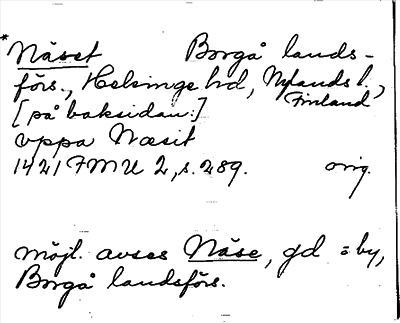 * Näset Borgå lands-
förs., Helsinge hd, Nylands l.,
Finland
[på baksidan:]
vppa Næsit
1421 FMU 2, s. 289. orig.
möjl. avses Näse, gd = by,
Borgå landsförs.